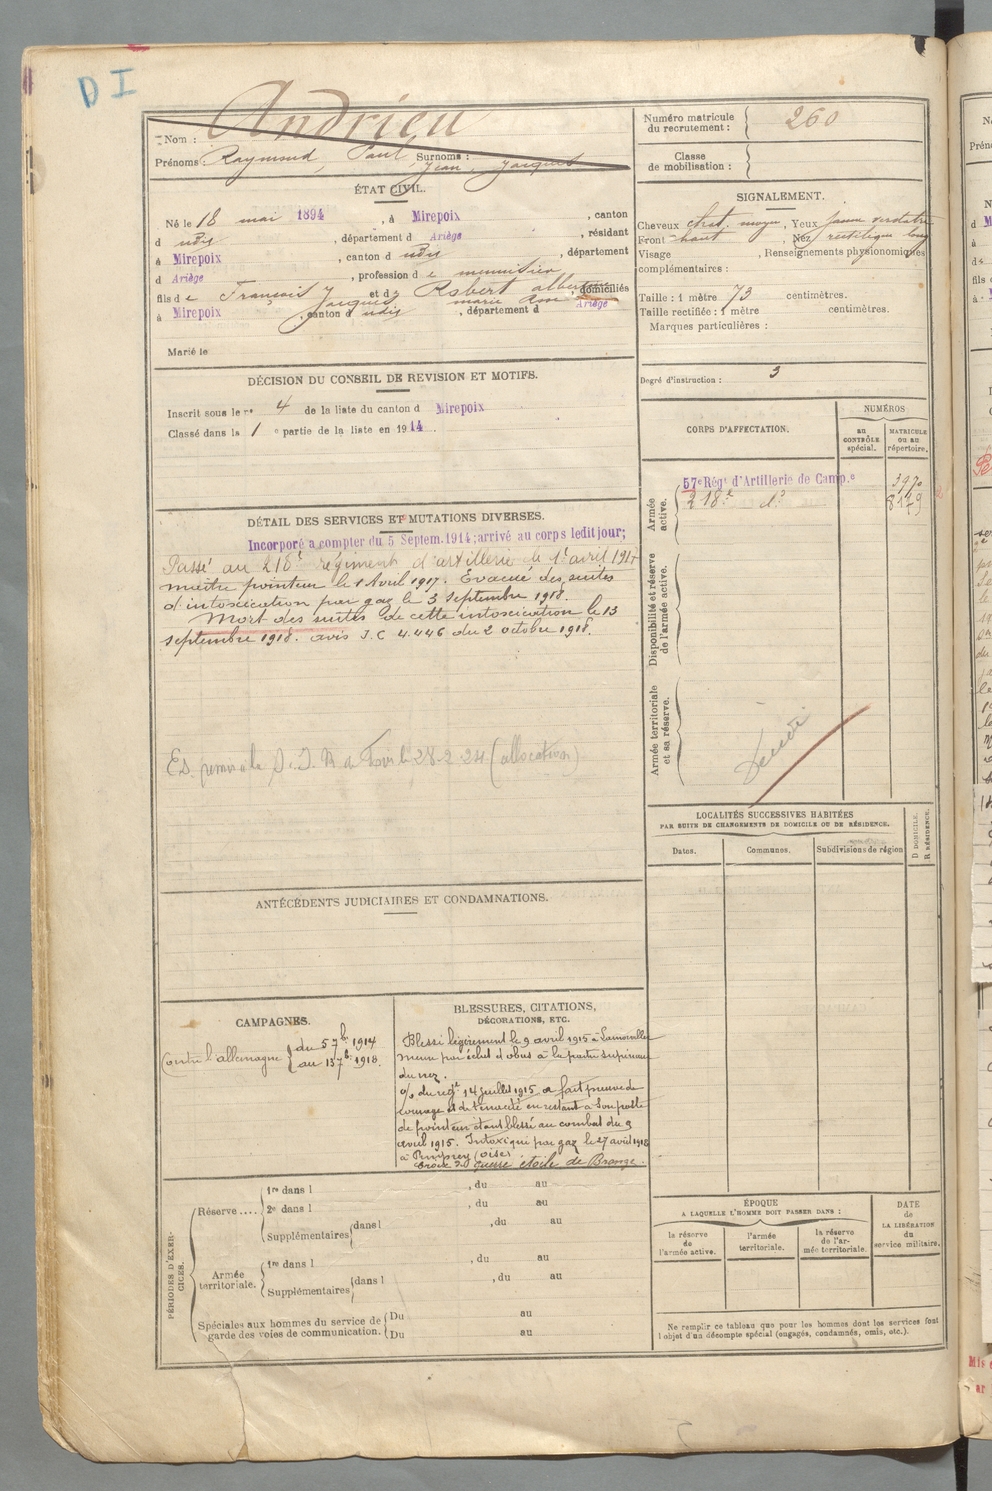 D I
Nom : Andrieu
Prénoms : Raymond, Paul, Jean, Jacques Surnoms :
ÉTAT CIVIL.
Né le 18 mai 1894, à Mirepoix, canton
d udis, département d Ariège, résidant
à Mirepoix, canton d udis, département
d Ariège, profession de menuisier
fils de François Jacques et de Robert marie domiciliés
à Mirepoix, canton d udis, département d Ariège
Marié le
DÉCISION DU CONSEIL DE REVISION ET MOTIFS.
Inscrit sous le n° 4 de la liste du canton d Mirepoix
Classé dans la 1 e partie de la liste en 1914.
DÉTAIL DES SERVICES ET MUTATIONS DIVERSES.
Incorporé à compter du 5 Septem. 1914; arrivé au corps ledit jour;
Passé au 218e régiment d'artillerie le 1er avril 1917
maitre pointeur le 1 Avril 1917. Évacué des suites
d'intoscication par gaz le 3 septembre 1918.
Mort des suites de cette intoscication le 13
septembre 1918. avis J.C 4.446 du 2 octobre 1918.
28-2 24 (allocation)
ANTÉCÉDENTS JUDICIAIRES ET CONDAMNATIONS.
CAMPAGNES.
Contre l'allemagne { du 5 7bre 1914
au 13 7bre 1918.
BLESSURES, CITATIONS,
DÉCORATIONS, ETC.
Blessé légèrement le 9 avril 1915 à
meme par éclat d'obus à la partie supérieure
du nez.
o/o du regt 14 juillet 1915 a fait preuve de
courage et de tenacité en restant à son poste
de pointeur étant blessé au combat du 9
avril 1915. Intoxiqué par gaz le 27 avril 1918
à Pimprez (oise)
Croix de guerre étoile de Bronze.
PÉRIODES D'EXERCICES.
Réserve.... 1re dans l , du au
2e dans l , du au
Supplémentaires dans l , du au
Armée territoriale. 1re dans l , du au
Supplémentaires dans l , du au
Spéciales aux hommes du service de
garde des voies de communication. Du au
Du au
Numéro matricule
du recrutement : 260
Classe
de mobilisation :
SIGNALEMENT.
Cheveux chat. moyen, Yeux jaune verdatre
Front haut, Nez rectiligne long
Visage , Renseignements physionomiques
complémentaires :
Taille : 1 mètre 73 centimètres.
Taille rectifiée : 1 mètre centimètres.
Marques particulières :
Degré d'instruction : 3
CORPS D'AFFECTATION.
NUMÉROS
au
CONTRÔLE
spécial.
MATRICULE
ou au
répertoire.
Armée
active.
57e Régt d'Artillerie de Camp.e 3970
218e do 8179
Disponibilité et réserve
de l'armée active.
Armée territoriale
et sa réserve.
LOCALITÉS SUCCESSIVES HABITÉES
PAR SUITE DE CHANGEMENTS DE DOMICILE OU DE RÉSIDENCE.
Dates. Communes. Subdivisions de région
D DOMICILE.
R RÉSIDENCE.
ÉPOQUE
A LAQUELLE L'HOMME DOIT PASSER DANS :
la réserve
de
l'armée active.
l'armée
territoriale.
la réserve
de l'ar-
mée territoriale.
DATE
de
LA LIBÉRATION
du
service militaire.
Ne remplir ce tableau que pour les hommes dont les services font
l'objet d'un décompte spécial (engagés, condamnés, omis, etc.).